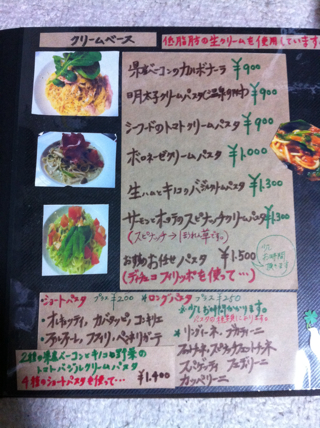 クリームベース
低脂肪の生クリームを使用しています
ベーコンのカルボナーラ ¥900
明太子クリームパスタ ¥900
シーフードのトマトクリームパスタ ¥900
ボロネーゼクリームパスタ ¥1.000
生ハムとキノコのバジルクリームパスタ ¥1.300
サーモンとホタテのスピナッチクリームパスタ ¥1.300
(スピナッチ→ほうれん草です。)
お勧めお任せパスタ ¥1.500
(ディチェコ フィリッポを使って…)
お時間
・ショートパスタ プラス¥200 ・ロングパスタ プラス¥250
※少しお時間かかります。
・オレキエッティ、カバタッピ、コンキリエ
・リングイーネ、ブカティーニ
・ファルファーレ、フジリ、ペンネリガーテ
スパゲッティ
カッペリーニ
2種の ベーコンとキノコと野菜の
トマトバジルクリームパスタ
4種のショートパスタを使って… ¥1.400